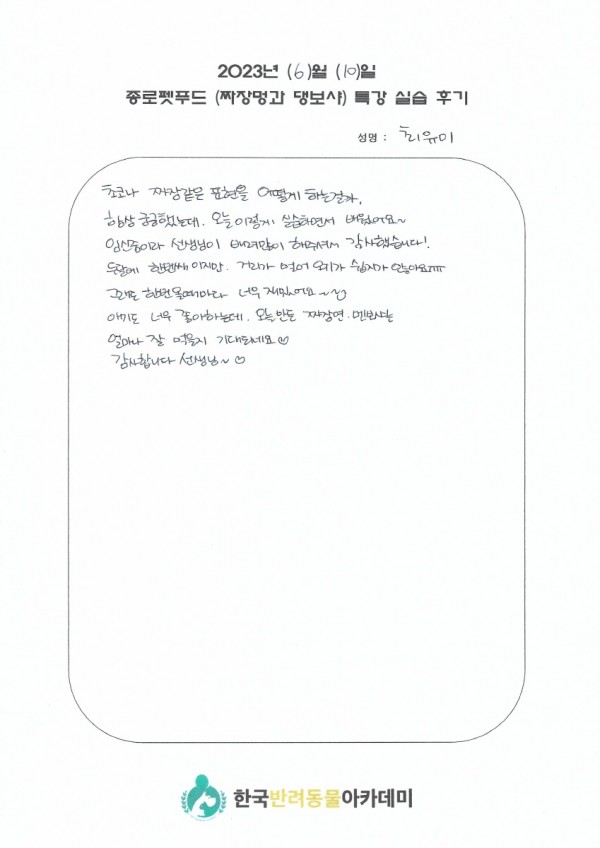 2023년 (6)월 (10)일
종로펫푸드 (짜장멍과 댕보샤) 특강 실습 후기
성명 : 최유미
초코나 짜장같은 표현을 어떻게 하는걸까,
항상 궁금했는데, 오늘 이렇게 실습하면서 배웠어요~
임신중이라 선생님이 배려많이 해주셔서 감사했습니다!
두달에 한번씩이지만, 거리가 멀어 오기가 쉽지가 않아요ㅠㅠ
그래도 한번 올때마다 너무 재밌어요~
애기도 너무 좋아하는데, 오늘 만든 짜장면, 멘보샤는
얼마나 잘 먹을지 기대되네요♡
감사합니다 선생님~♡
한국반려동물아카데미